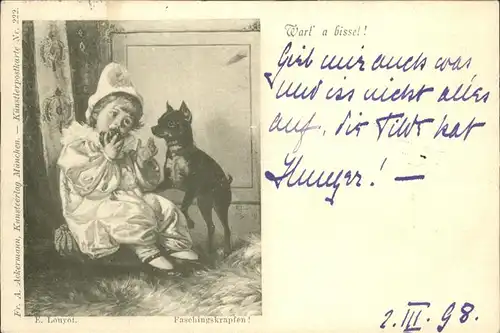 Fr. A. Ackermann, Kunstverlag München. — Künstlerpostkarte Nr. 222.
Wart' a bissel!
Gieb mir auch was
und iss nicht alles
auf, die Tilde hat
Hunger! —
E. Louyot.
Faschingskrapfen!
2. III. 98.